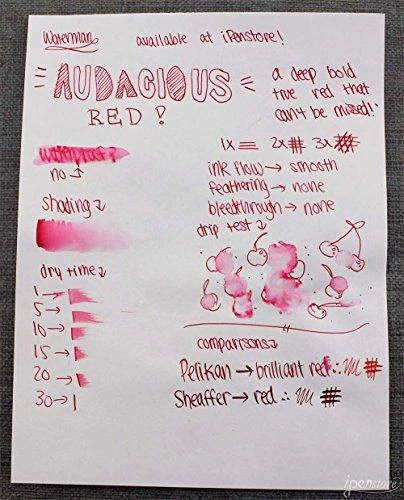 Waterman available at iPenstore!
AUDACIOUS
RED!
a deep bold
true red that
can't be missed!
waterproof?
no
shading
dry time
1 →
5 →
10 →
15 →
20 →
30 →
1x 2x 3x
ink flow → smooth
feathering → none
bleedthrough → none
drip test
comparisons
Pelikan → brilliant red
Sheaffer → red
ipenstore